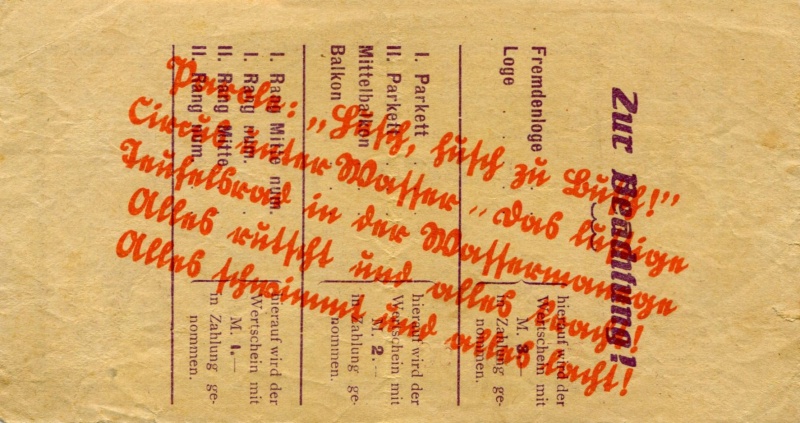 Parole: "Husch, husch zu Busch!"
Circus unter Wasser - Das lustige
Teufelsrad in der Wassermanege
Alles rutscht und alles kracht!
Alles schwimmt und alles lacht!
Zur Beachtung!
Fremdenloge
Loge
hierauf wird der
Wertschein mit
M. 3.—
in Zahlung ge-
nommen.
I. Parkett
II. Parkett
Mittelbalkon
Balkon
hierauf wird der
Wertschein mit
M. 2.—
in Zahlung ge-
nommen.
I. Rang Mitte num.
I. Rang num.
II. Rang Mitte
II. Rang num.
hierauf wird der
Wertschein mit
M. 1.—
in Zahlung ge-
nommen.